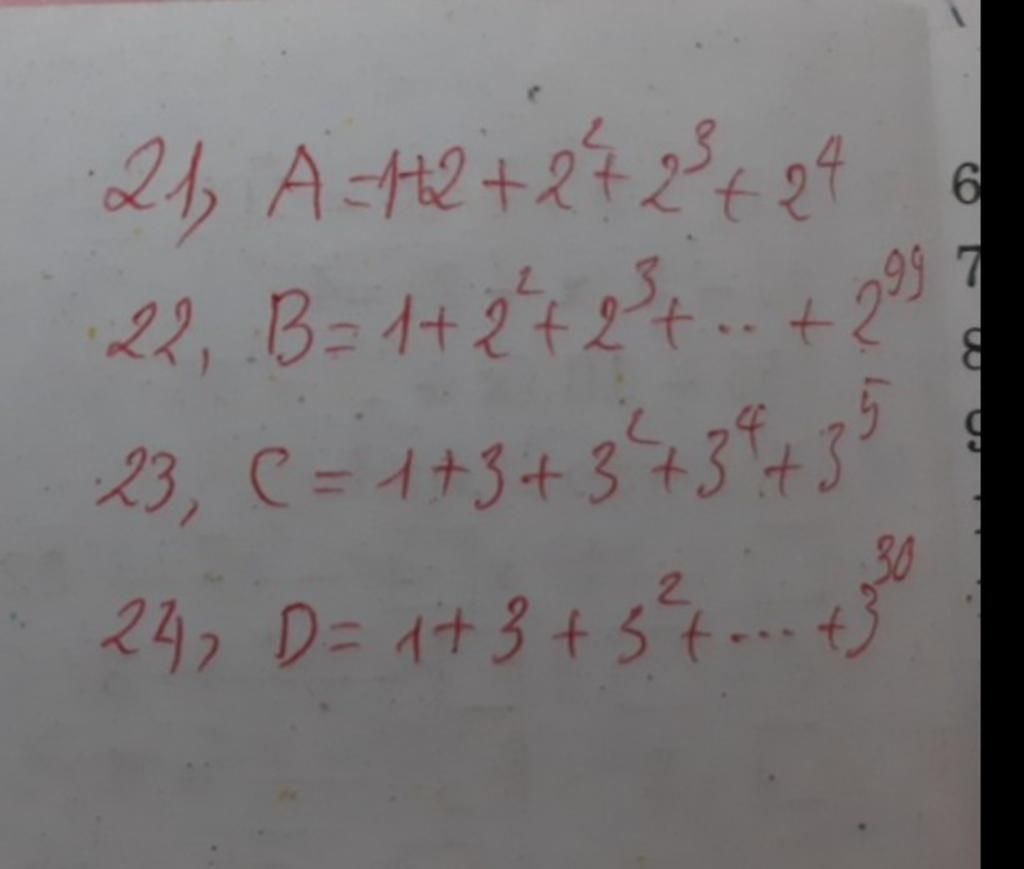 21, A = 1+2 + 2² + 2³ + 2⁴
22, B = 1 + 2² + 2³ + .. + 2⁹⁹
23, C = 1 + 3 + 3² + 3⁴ + 3⁵
24, D = 1 + 3 + 3² + ... + 3³⁰
6
7
8
9